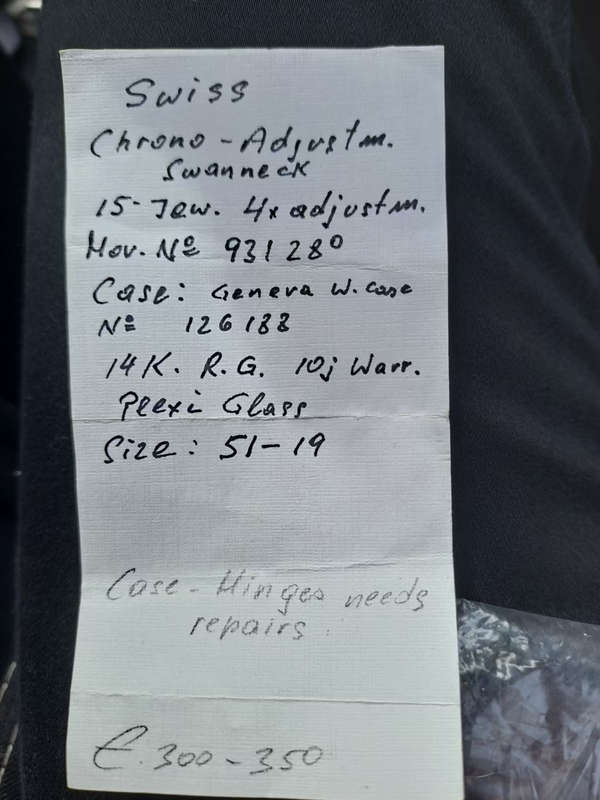 Swiss
Chrono - Adjustm.
Swanneck
15- Jew. 4x adjustm.
Mov. Nº 931280
Case: Geneva W. Case
Nº 126188
14K. R.G. 10j Warr.
Plexi Glass
Size: 51-19
Case - Hinges needs
repairs.
€. 300 - 350